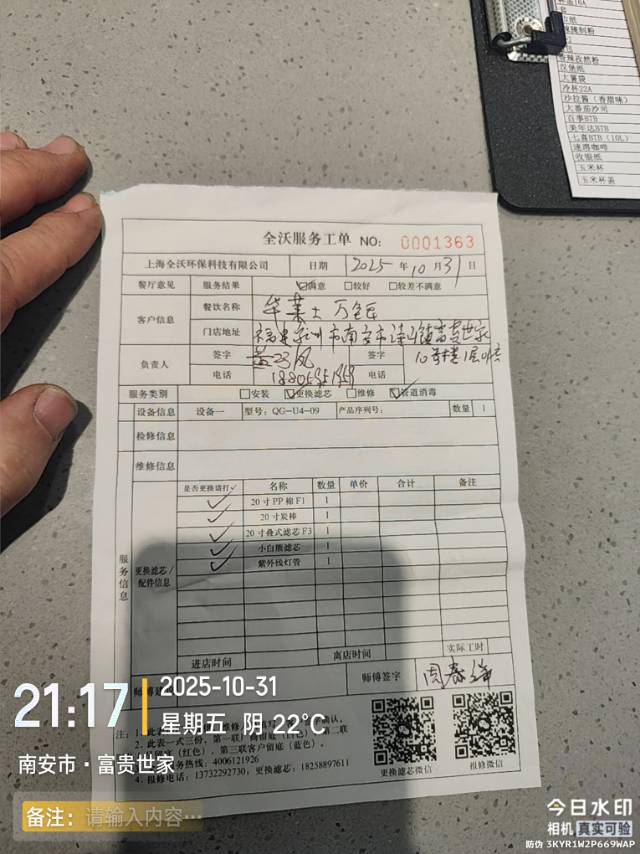 全沃服务工单 NO: 0001363
上海全沃环保科技有限公司 日期 2025 年 10 月 31 日
餐厅意见 服务结果 ☑满意 □较好 □较差不满意
客户信息 餐饮名称 华莱士
门店地址 福建泉州市南安市 富贵世家
10号楼1层
负责人 签字 签字
电话 电话
服务类别 □安装 ☑更换滤芯 □维修 ☑管道消毒
设备信息 设备一 型号: QG-U4-09 产品序列号: 数量 1
检修信息
维修信息
服务信息
更换滤芯/配件信息
是否更换请打✓ 名称 数量 单价 合计 备注
✓ 20寸PP棉F1 1
✓ 20寸炭棒 1
✓ 20寸叠式滤芯F3 1
✓ 小白熊滤芯 1
✓ 紫外线灯管 1
进店时间 离店时间 实际工时
师傅签字 周春
注: 1. 此表
2. 此表一式三份,
(红色), 第三联客户留底(蓝色)。
务热线: 4006121926
4. 报修电话: 13732292730; 更换滤芯: 18258897611
更换滤芯微信 报修微信
大薯袋
冷杯22A
沙拉酱(香甜味)
大番茄沙司
百事BTB
美年达BTB
七喜BTB(10L)
速溶咖啡
收银纸
玉米杯
玉米杯盖
21:17
2025-10-31
星期五 阴 22°C
南安市·富贵世家
备注: 请输入内容…
今日水印
相机 真实可验
防伪 3KYR1W2P669WAP